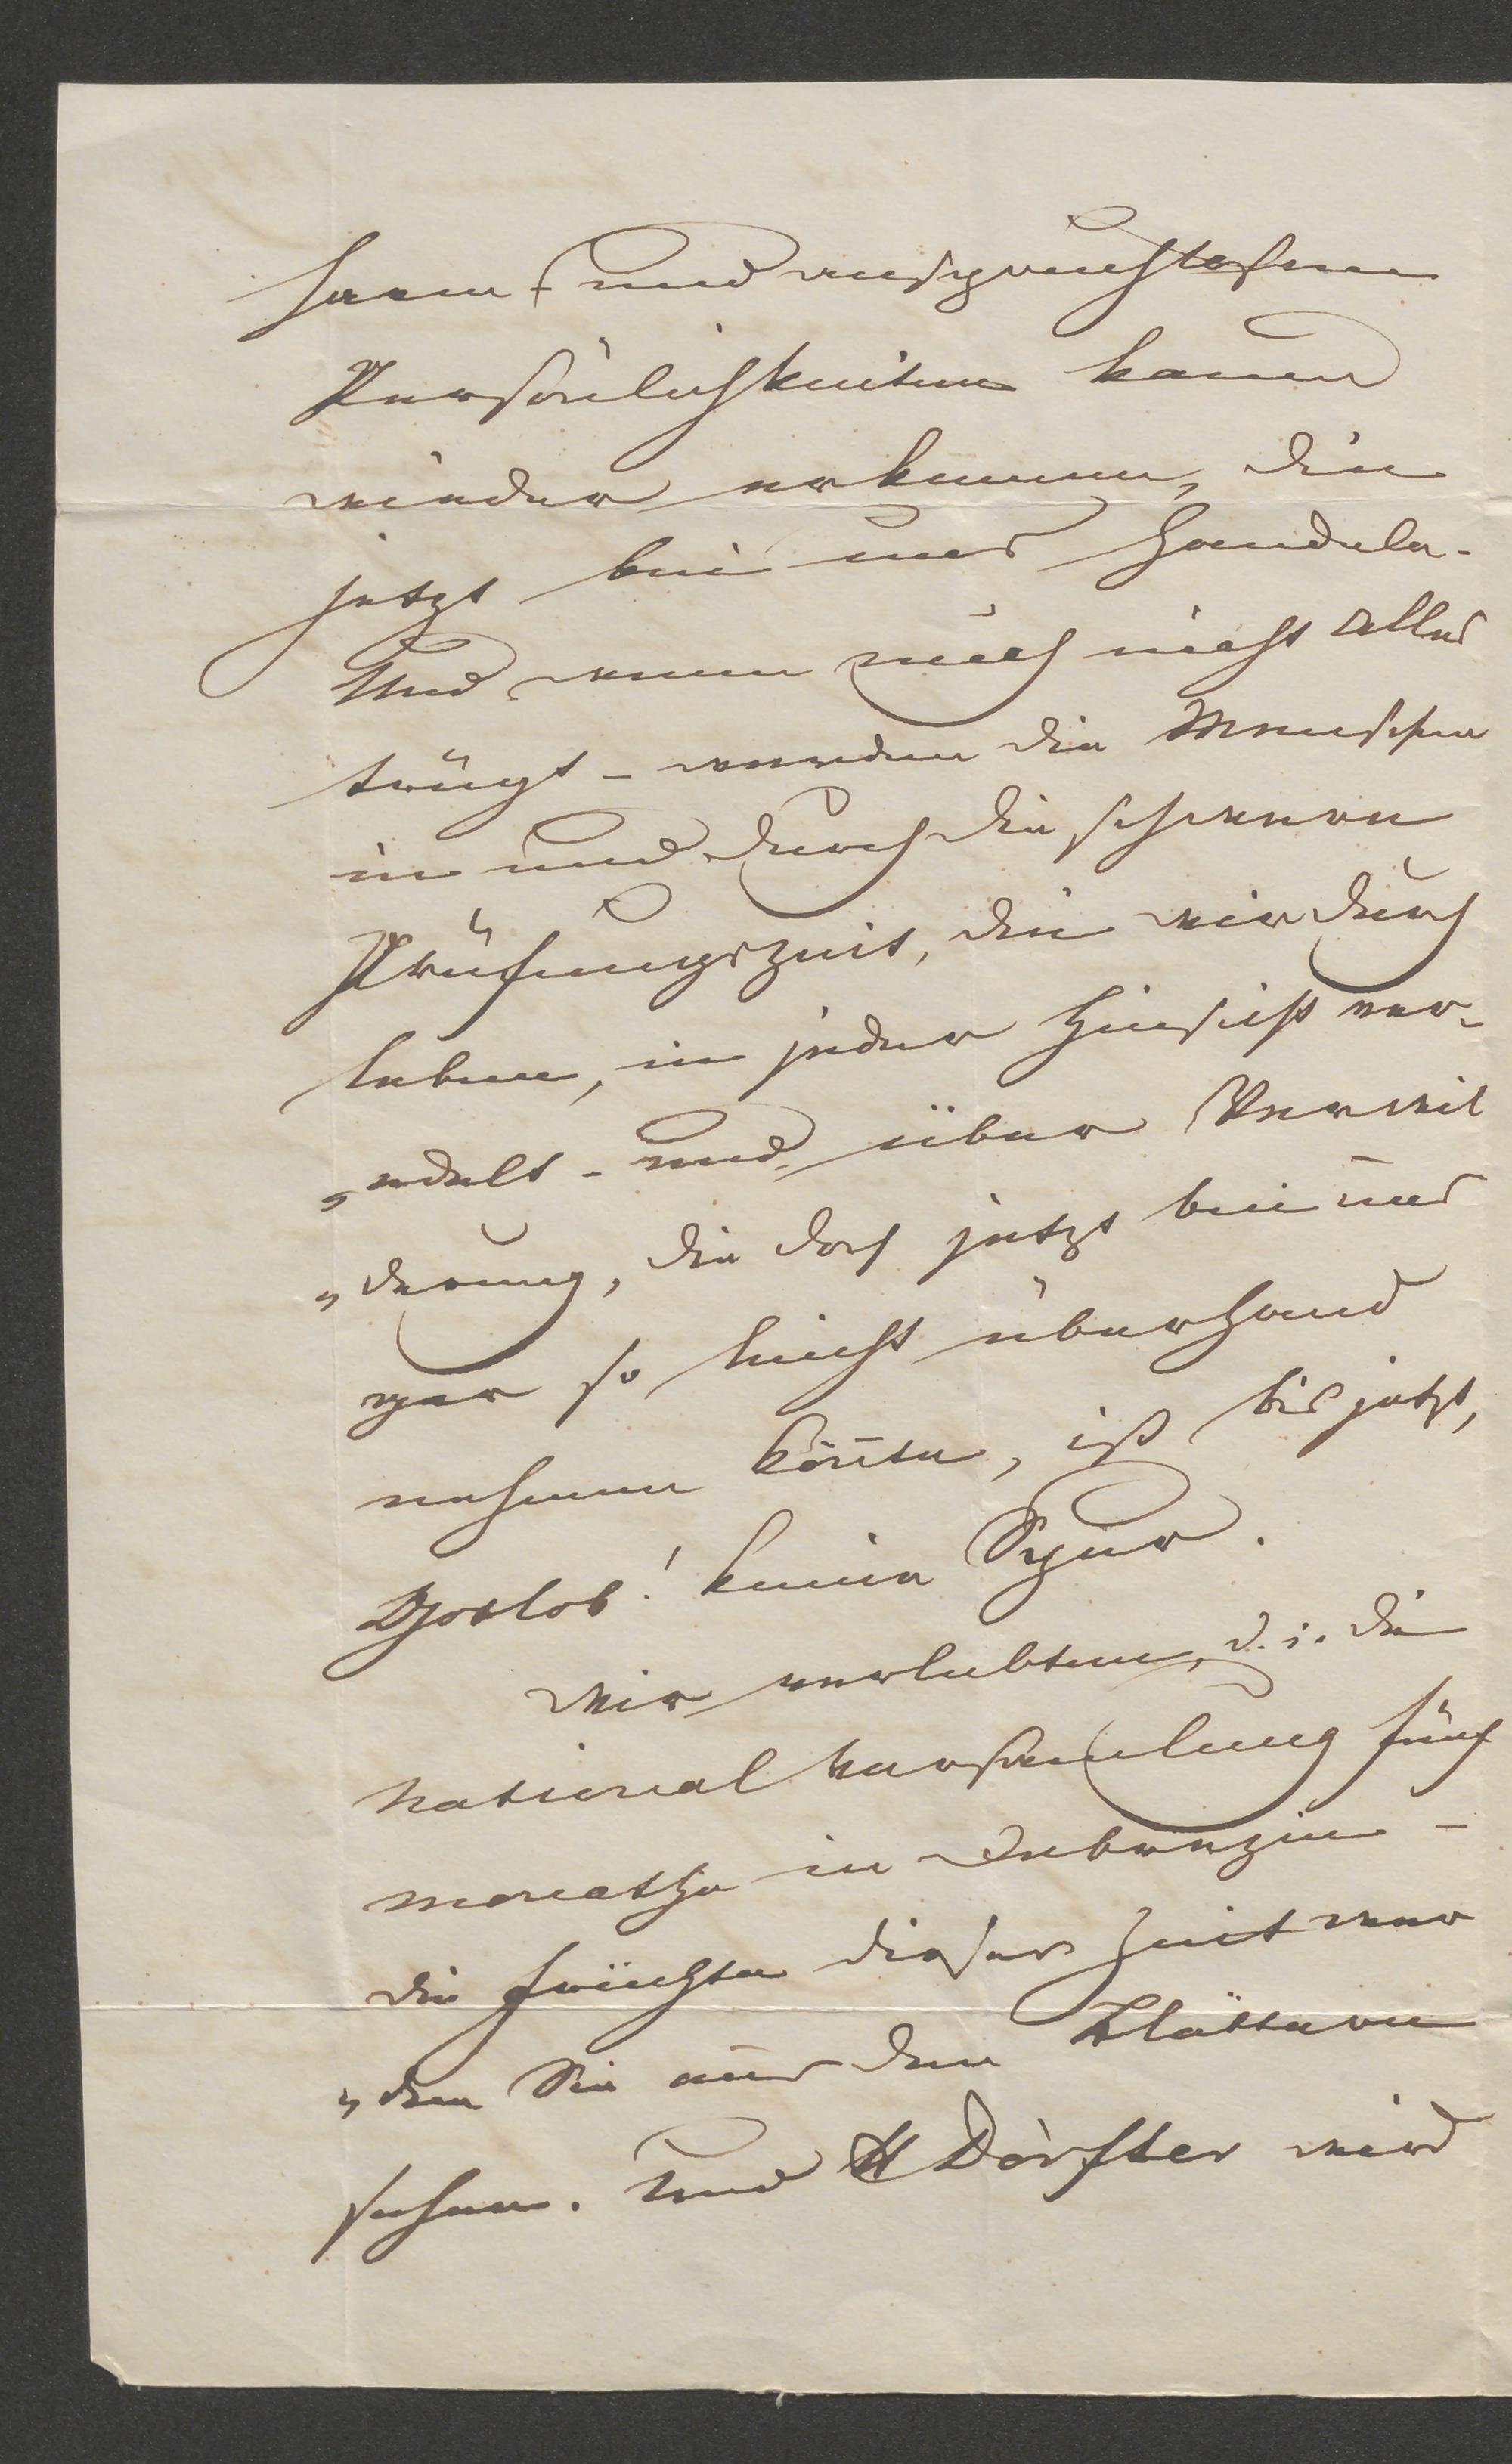 harm- und anspruchlosen
Persönlichkeiten kaum
wieder erkennen, die
jetzt bei uns handeln.
Und wenn mich nicht alles
trügt – werden die Menschen
in und durch die schwere
Prüfungszeit, die wir durch
leben, in jeder Hinsicht ver-
„edelt – und über Verwil
„derung, die doch jetzt bei uns
gar so leicht überhand
nehmen kön̄te, ist bis jetzt,
Gottlob! keine Spur.
Wir verlebten, d. i. die
National Versam̄lung fünf
Monathe in Debrezin –
die Früchte dieser Zeit wer
„den Sie aus den Blättern
sehen. Und H Dörfler wird